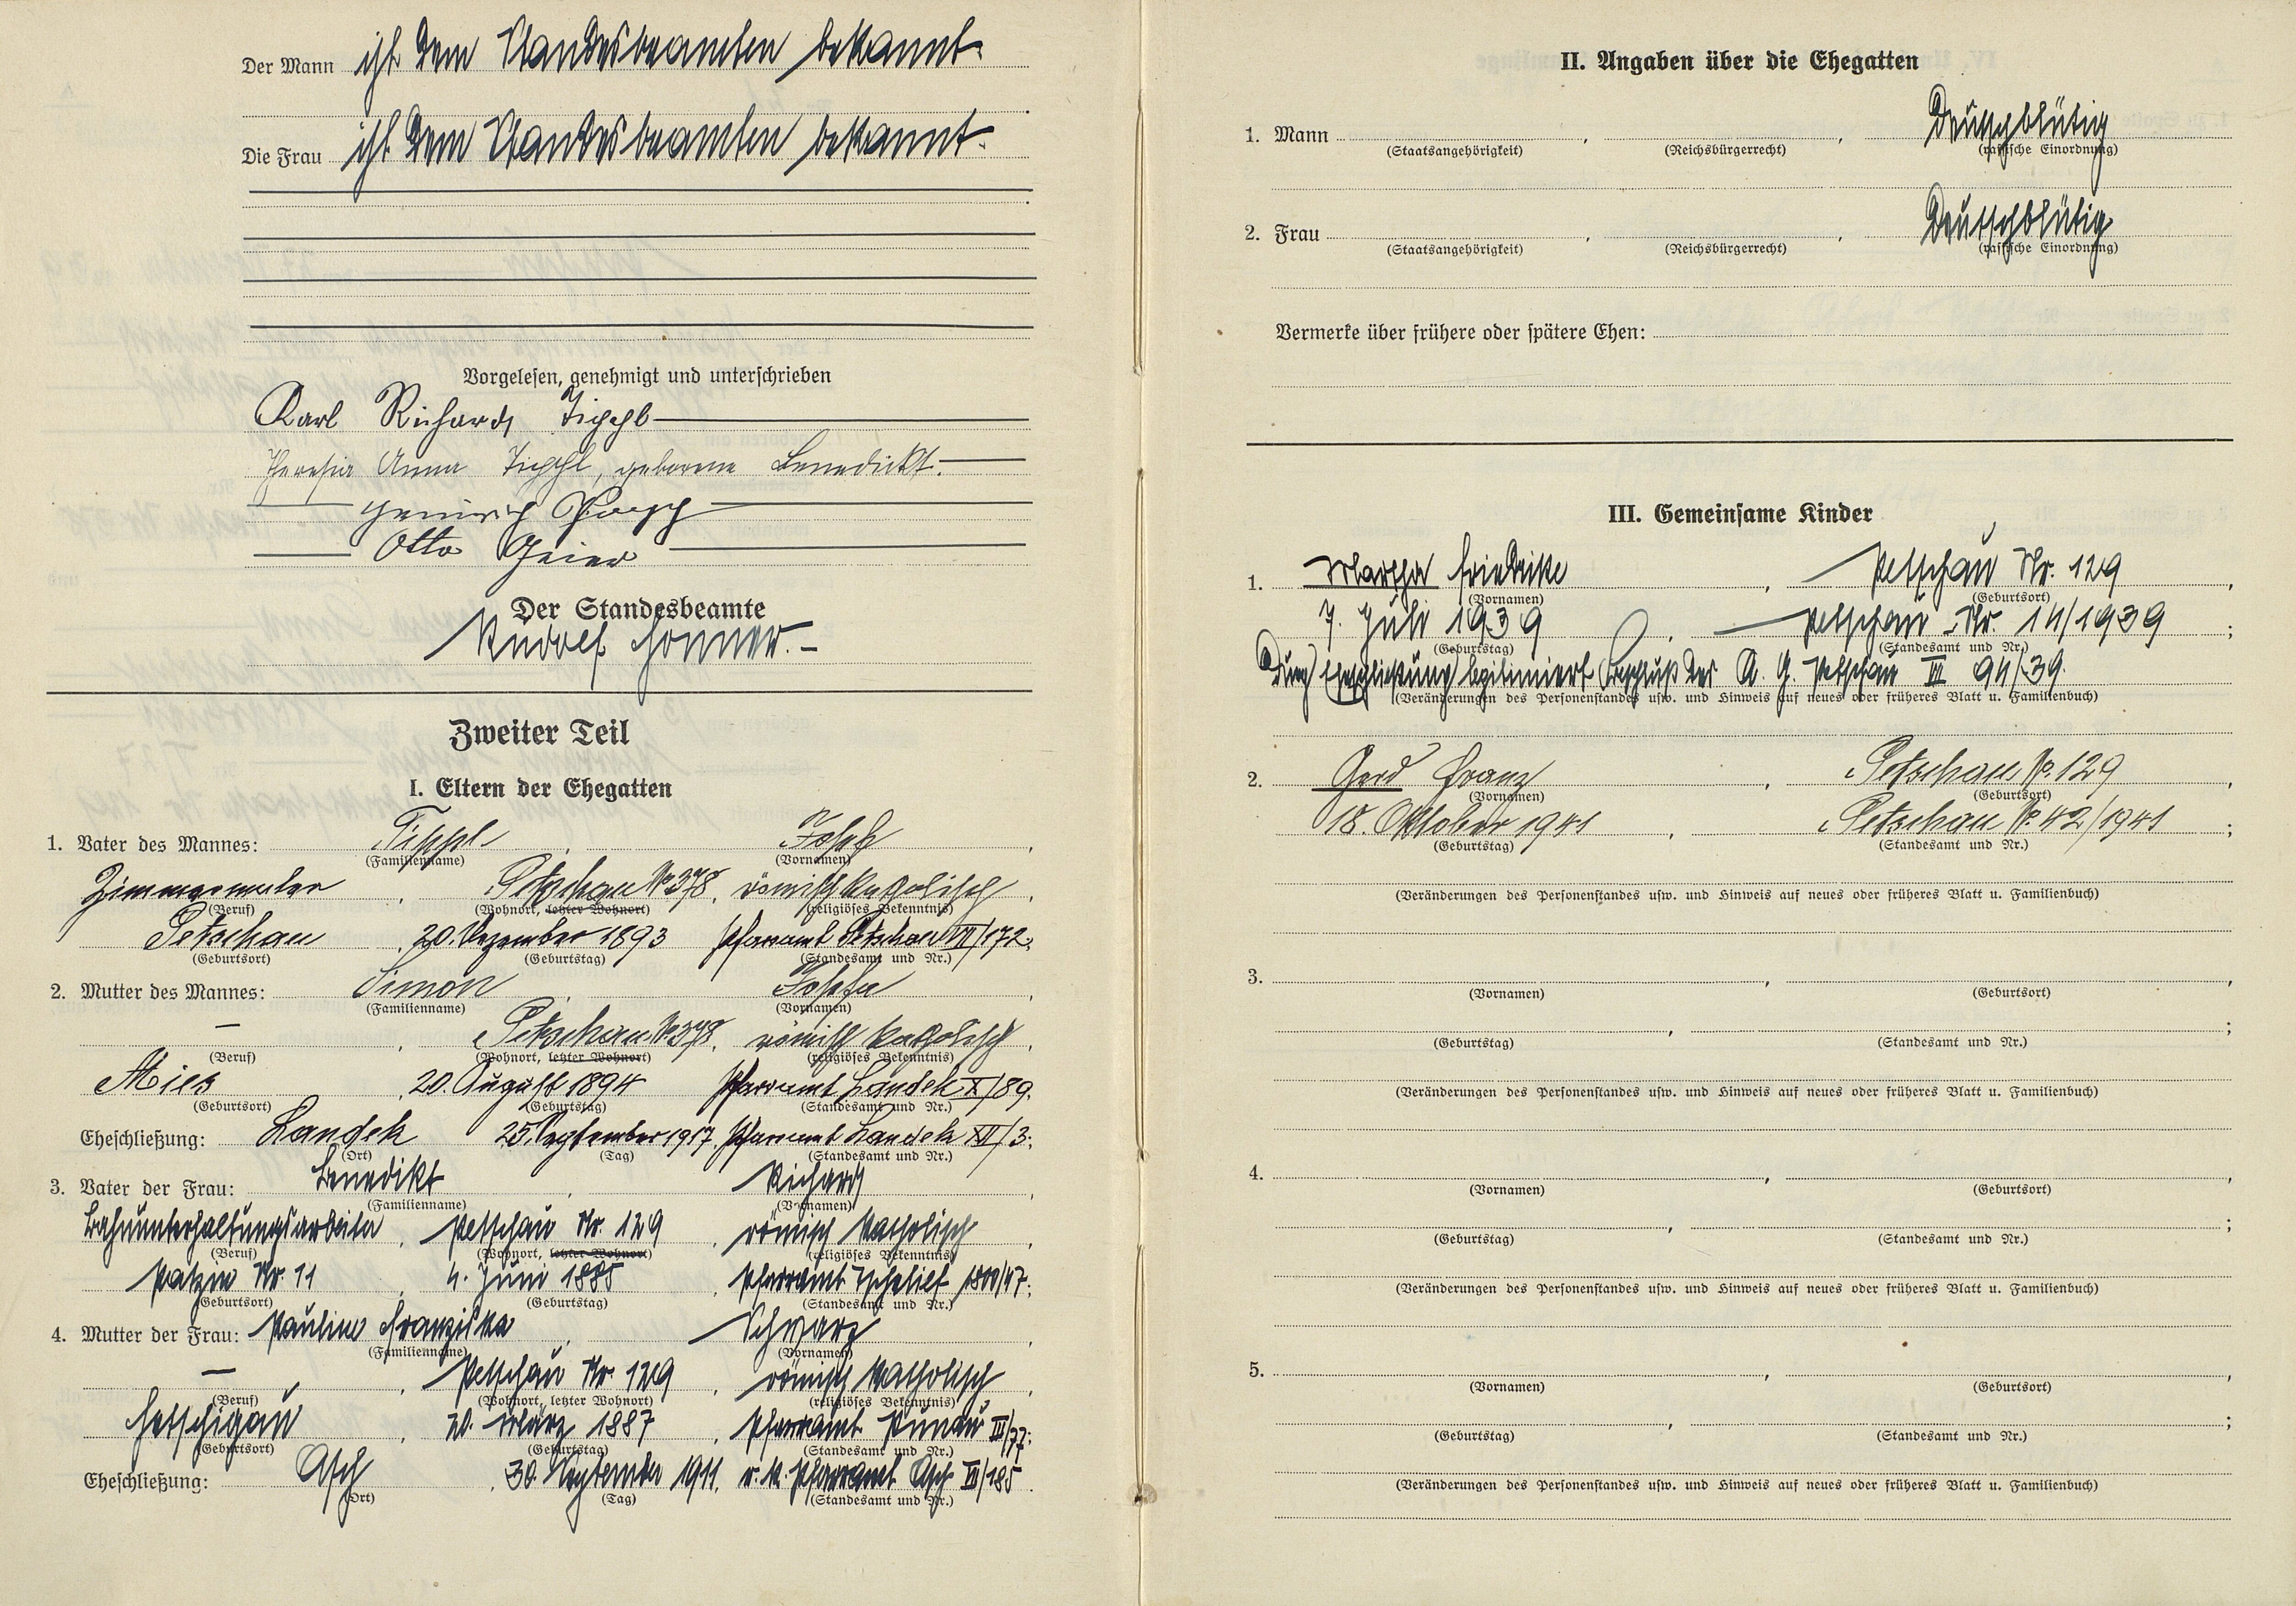 Der Mann ist dem Standesbeamten bekannt.
Die Frau ist dem Standesbeamten bekannt.
Vorgelesen, genehmigt und unterschrieben
Karl Richard Tippl
Theresia Anna Tippl, geborene Benedickt.
Heinrich
Otto Geier
Der Standesbeamte
Rudolf
Zweiter Teil
I. Eltern der Ehegatten
1. Vater des Mannes: Tippl, Josef,
(Familienname) (Vornamen)
Zimmermaler, Petschau No 378, römisch katholisch,
(Beruf) (Wohnort, letzter Wohnort) (religiöses Bekenntnis)
Petschau, 20. Dezember 1893 Pfarramt Petschau VII/172;
(Geburtsort) (Geburtstag) (Standesamt und Nr.)
2. Mutter des Mannes: Simon, Josefa,
(Familienname) (Vornamen)
–, Petschau No 378, römisch katholisch,
(Beruf) (Wohnort, letzter Wohnort) (religiöses Bekenntnis)
Mies, 20. August 1894 Pfarramt Landek X/89.
(Geburtsort) (Geburtstag) (Standesamt und Nr.)
Eheschließung: Landek 25. September 1917, Pfarramt Landek XII/3;
(Ort) (Tag) (Standesamt und Nr.)
3. Vater der Frau: Benedikt, Richard,
(Familienname) (Vornamen)
Bahnunterhaltungsarbeiter, Petschau Nr. 129, römisch katholisch,
(Beruf) (Wohnort, letzter Wohnort) (religiöses Bekenntnis)
Nr. 11, 4. Juni 1885, Pfarramt
(Geburtsort) (Geburtstag) (Standesamt und Nr.)
4. Mutter der Frau: Pauline Franziska, Schwarz,
(Familienname) (Vornamen)
–, Petschau Nr. 129, römisch katholisch,
(Beruf) (Wohnort, letzter Wohnort) (religiöses Bekenntnis)
Hetschigau, 20. März 1887, Pfarramt III/77;
(Geburtsort) (Geburtstag) (Standesamt und Nr.)
Eheschließung: Asch, 30. September 1911, r. k. Pfarramt Asch VI/185.
(Ort) (Tag) (Standesamt und Nr.)
II. Angaben über die Ehegatten
1. Mann, , Deutschblütig
(Staatsangehörigkeit) (Reichsbürgerrecht) (rassische Einordnung)
2. Frau, , Deutschblütig
(Staatsangehörigkeit) (Reichsbürgerrecht) (rassische Einordnung)
Vermerke über frühere oder spätere Ehen:
III. Gemeinsame Kinder
1. Martha Friedrike, Petschau Nr. 129,
(Vornamen) (Geburtsort)
7. Juli 1939, Petschau Nr. 14/1939;
(Geburtstag) (Standesamt und Nr.)
Durch Eheschließung legitimiert Beschluß des A. G. Petschau III 94/39.
(Veränderungen des Personenstandes usw. und Hinweis auf neues oder früheres Blatt u. Familienbuch)
2. Gerd Franz, Petschau No. 129,
(Vornamen) (Geburtsort)
18. Oktober 1941, Petschau No. 42/1941;
(Geburtstag) (Standesamt und Nr.)
(Veränderungen des Personenstandes usw. und Hinweis auf neues oder früheres Blatt u. Familienbuch)
3. , ,
(Vornamen) (Geburtsort)
, ;
(Geburtstag) (Standesamt und Nr.)
(Veränderungen des Personenstandes usw. und Hinweis auf neues oder früheres Blatt u. Familienbuch)
4. , ,
(Vornamen) (Geburtsort)
, ;
(Geburtstag) (Standesamt und Nr.)
(Veränderungen des Personenstandes usw. und Hinweis auf neues oder früheres Blatt u. Familienbuch)
5. , ,
(Vornamen) (Geburtsort)
, ;
(Geburtstag) (Standesamt und Nr.)
(Veränderungen des Personenstandes usw. und Hinweis auf neues oder früheres Blatt u. Familienbuch)